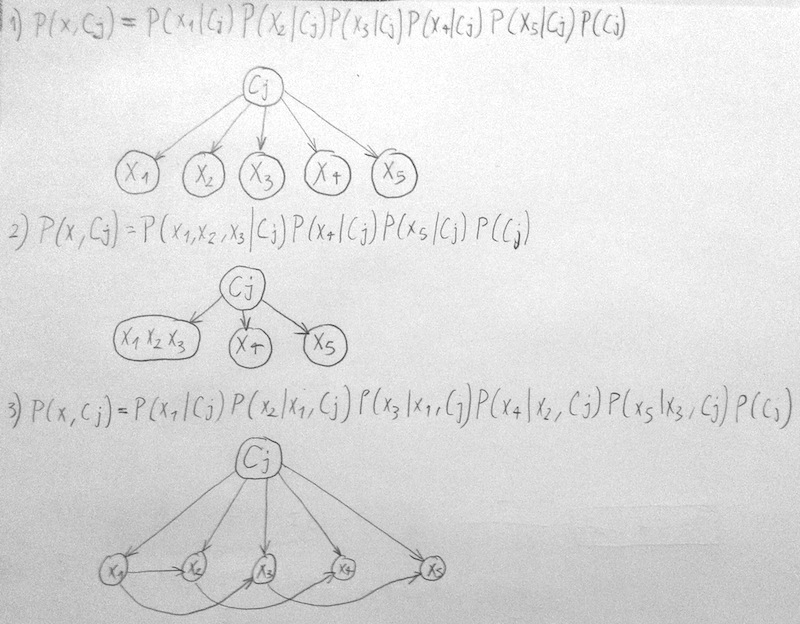 1) P(x,Cj) = P(x1|Cj) P(x2|Cj) P(x3|Cj) P(x4|Cj) P(x5|Cj) P(Cj)
Cj
x1 x2 x3 x4 x5
2) P(x,Cj) = P(x1,x2,x3|Cj) P(x4|Cj) P(x5|Cj) P(Cj)
Cj
x1 x2 x3 x4 x5
3) P(x,Cj) = P(x1|Cj) P(x2|x1,Cj) P(x3|x1,Cj) P(x4|x2,Cj) P(x5|x3,Cj) P(Cj)
Cj
x1 x2 x3 x4 x5